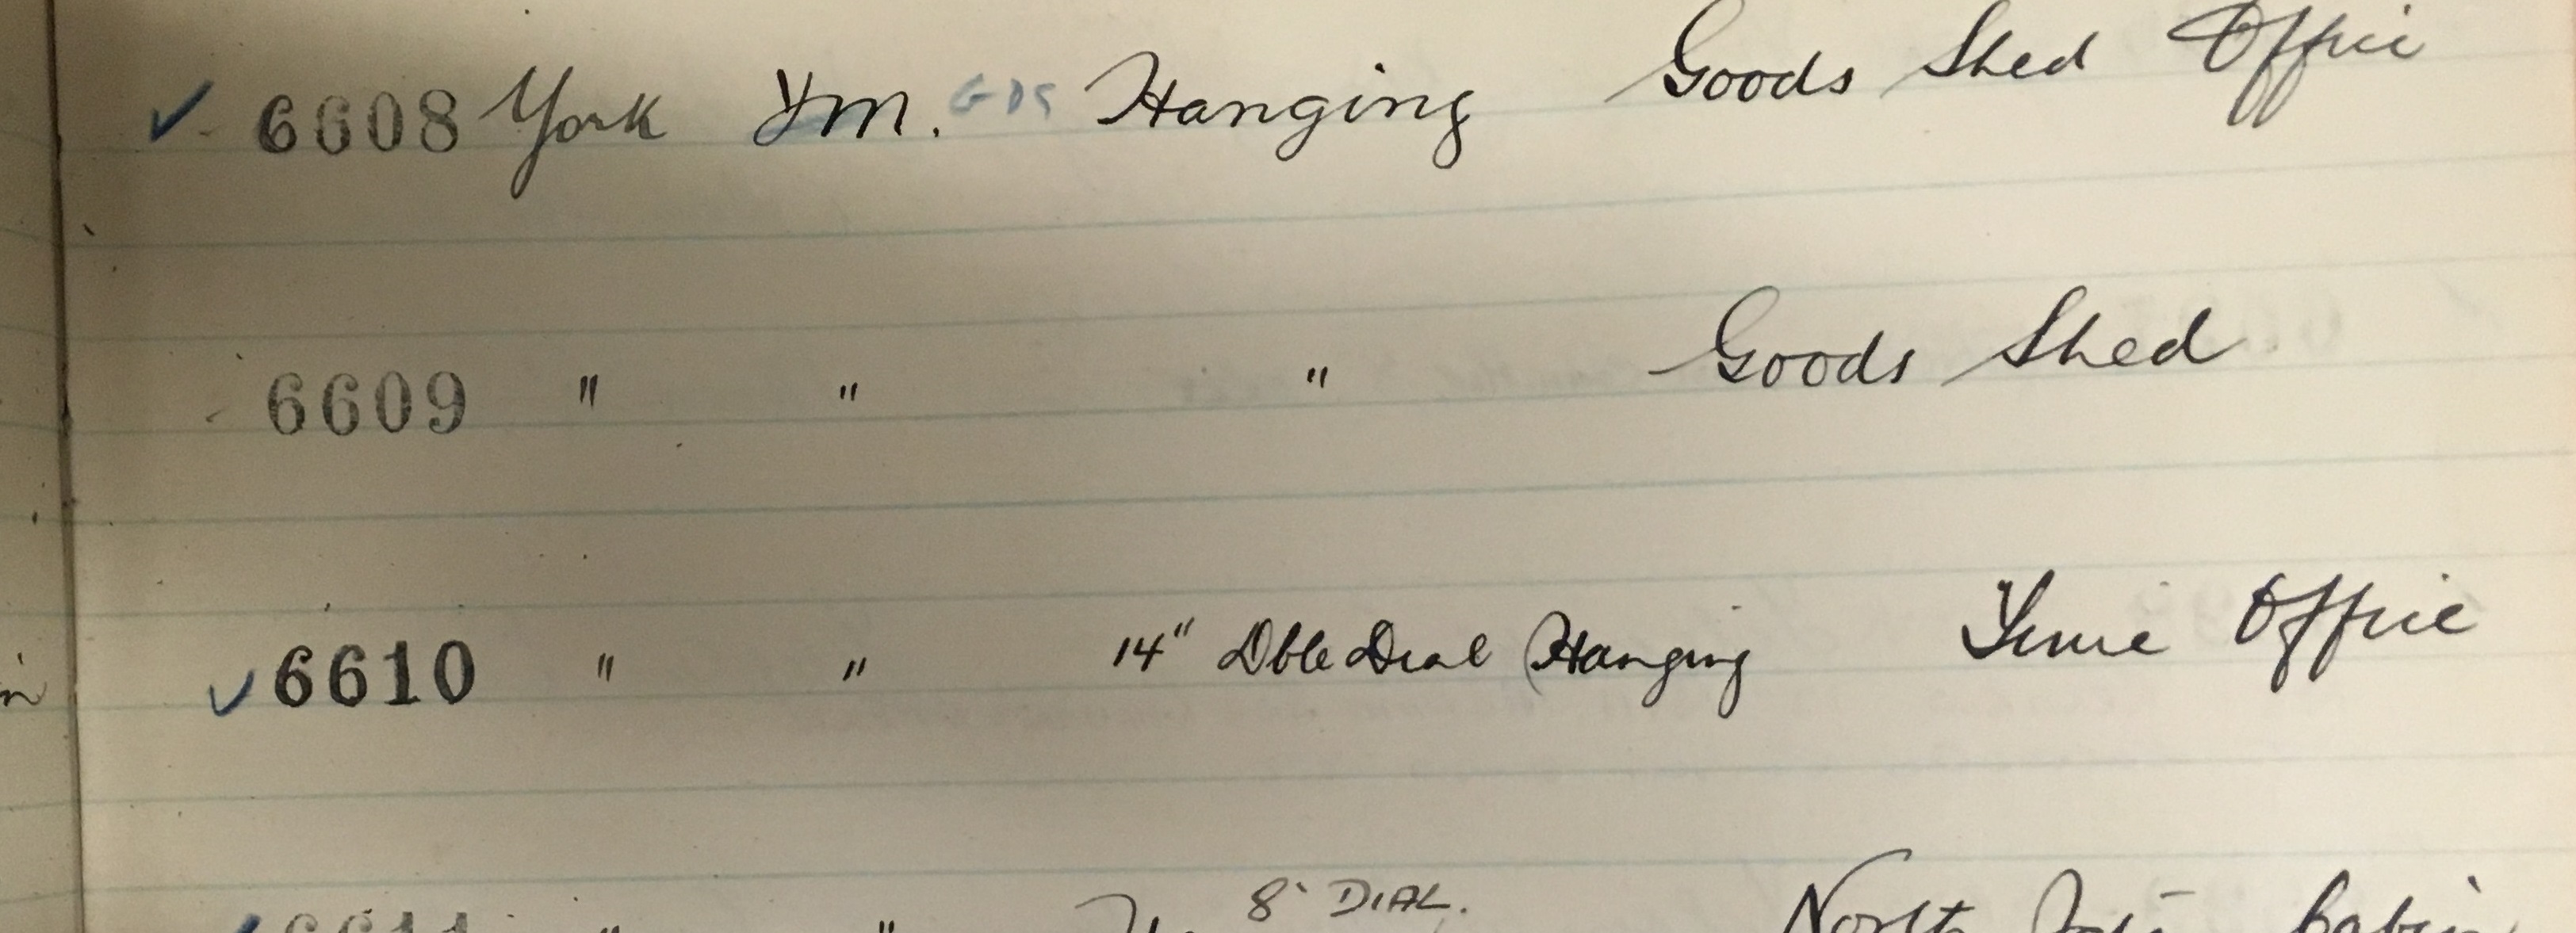 ✓ 6608 York YM. GDS Hanging Goods Shed Office
6609 " " " Goods Shed
✓ 6610 " " 14" Dble Dial (Hanging Time Office
8" DIAL.
6611 " " North Cabin